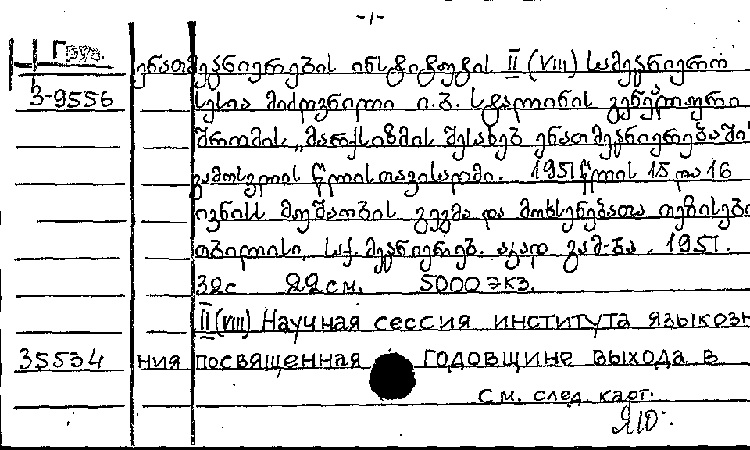 -1-
Груз.
ენათმეცნიერების ინსტიტუტის II (VIII) სამეცნიერო
3-9556 სესია მიძღვნილი ი. ბ. სტალინის გენიალური
შრომის „მარქსიზმის შესახებ ენათმეცნიერებაში"
გამოსვლის წლისთავისადმი. 1951 წლის 15 და 16
ივნისს მუშაობის გეგმა და მოხსენებათა თეზისები
თბილისი, საქ. მეცნიერებ. აკად გამ-ბა. 1951.
32с 22см. 5000 экз.
II (VIII) Научная сессия института языкозн
35534 ния посвященная годовщине выхода в
См. след. карт.